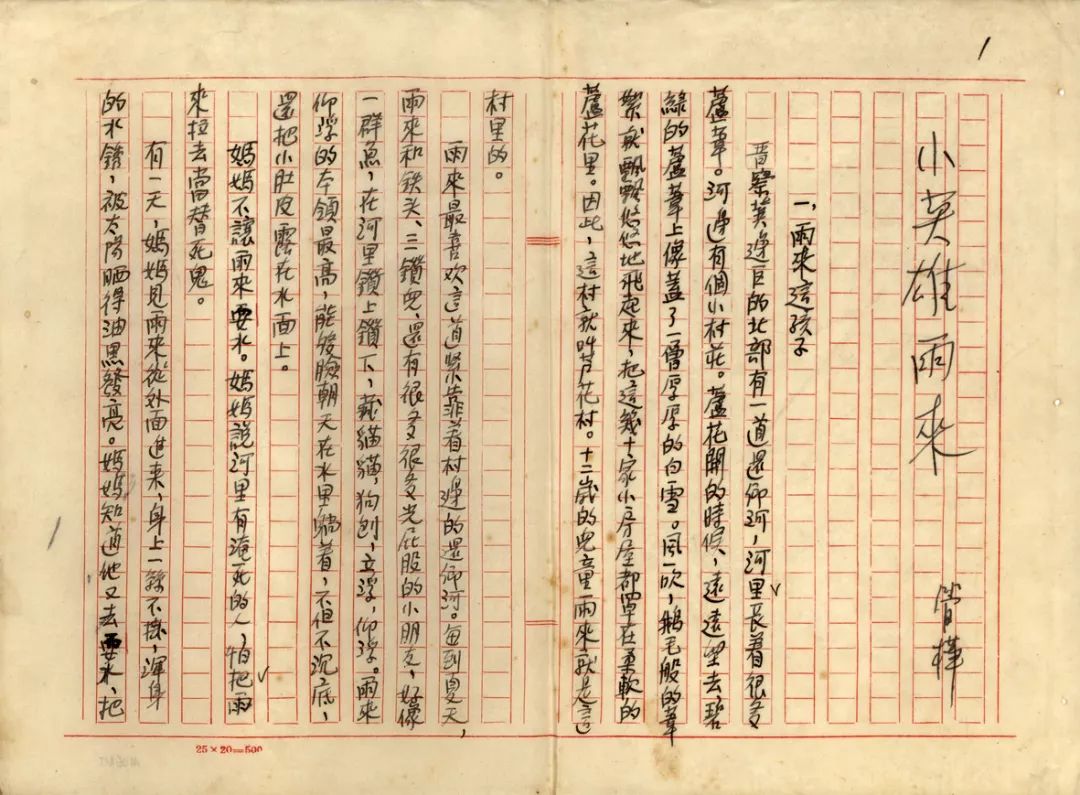 1
小英雄雨來
管樺
一，雨來這孩子
晋察冀边区的北部有一道還鄉河，河里長着很多
蘆葦。河边有個小村莊。蘆花開的時候，遠遠望去碧
綠的蘆葦上像蓋了一層厚厚的白雪。風一吹，鵝毛般的葦
絮就飄飄悠悠地飛起來，把這幾十家小房屋都罩在柔軟的
蘆花里。因此，這村就叫芦花村。十二歲的兒童雨來就是這
村里的。
雨來最喜欢這道緊靠着村邊的還鄉河。每到夏天，
雨來和铁头、三鑽兒，還有很多很多光屁股的小朋友，好像
一群魚，在河里鑽上鑽下，藏貓貓，狗刨，立浮，仰浮。雨來
仰浮的本領最高，能够臉朝天在水里躺着，不但不沉底，
還把小肚皮露在水面上。
媽媽不讓雨來耍水。媽媽説河里有淹死的人，怕把雨
來拉去當替死鬼。
有一天，媽媽見雨來從外面進来，身上一絲不掛，渾身
的水銹，被太陽晒得油黑發亮。媽媽知道他又去耍水，把
25×20=500